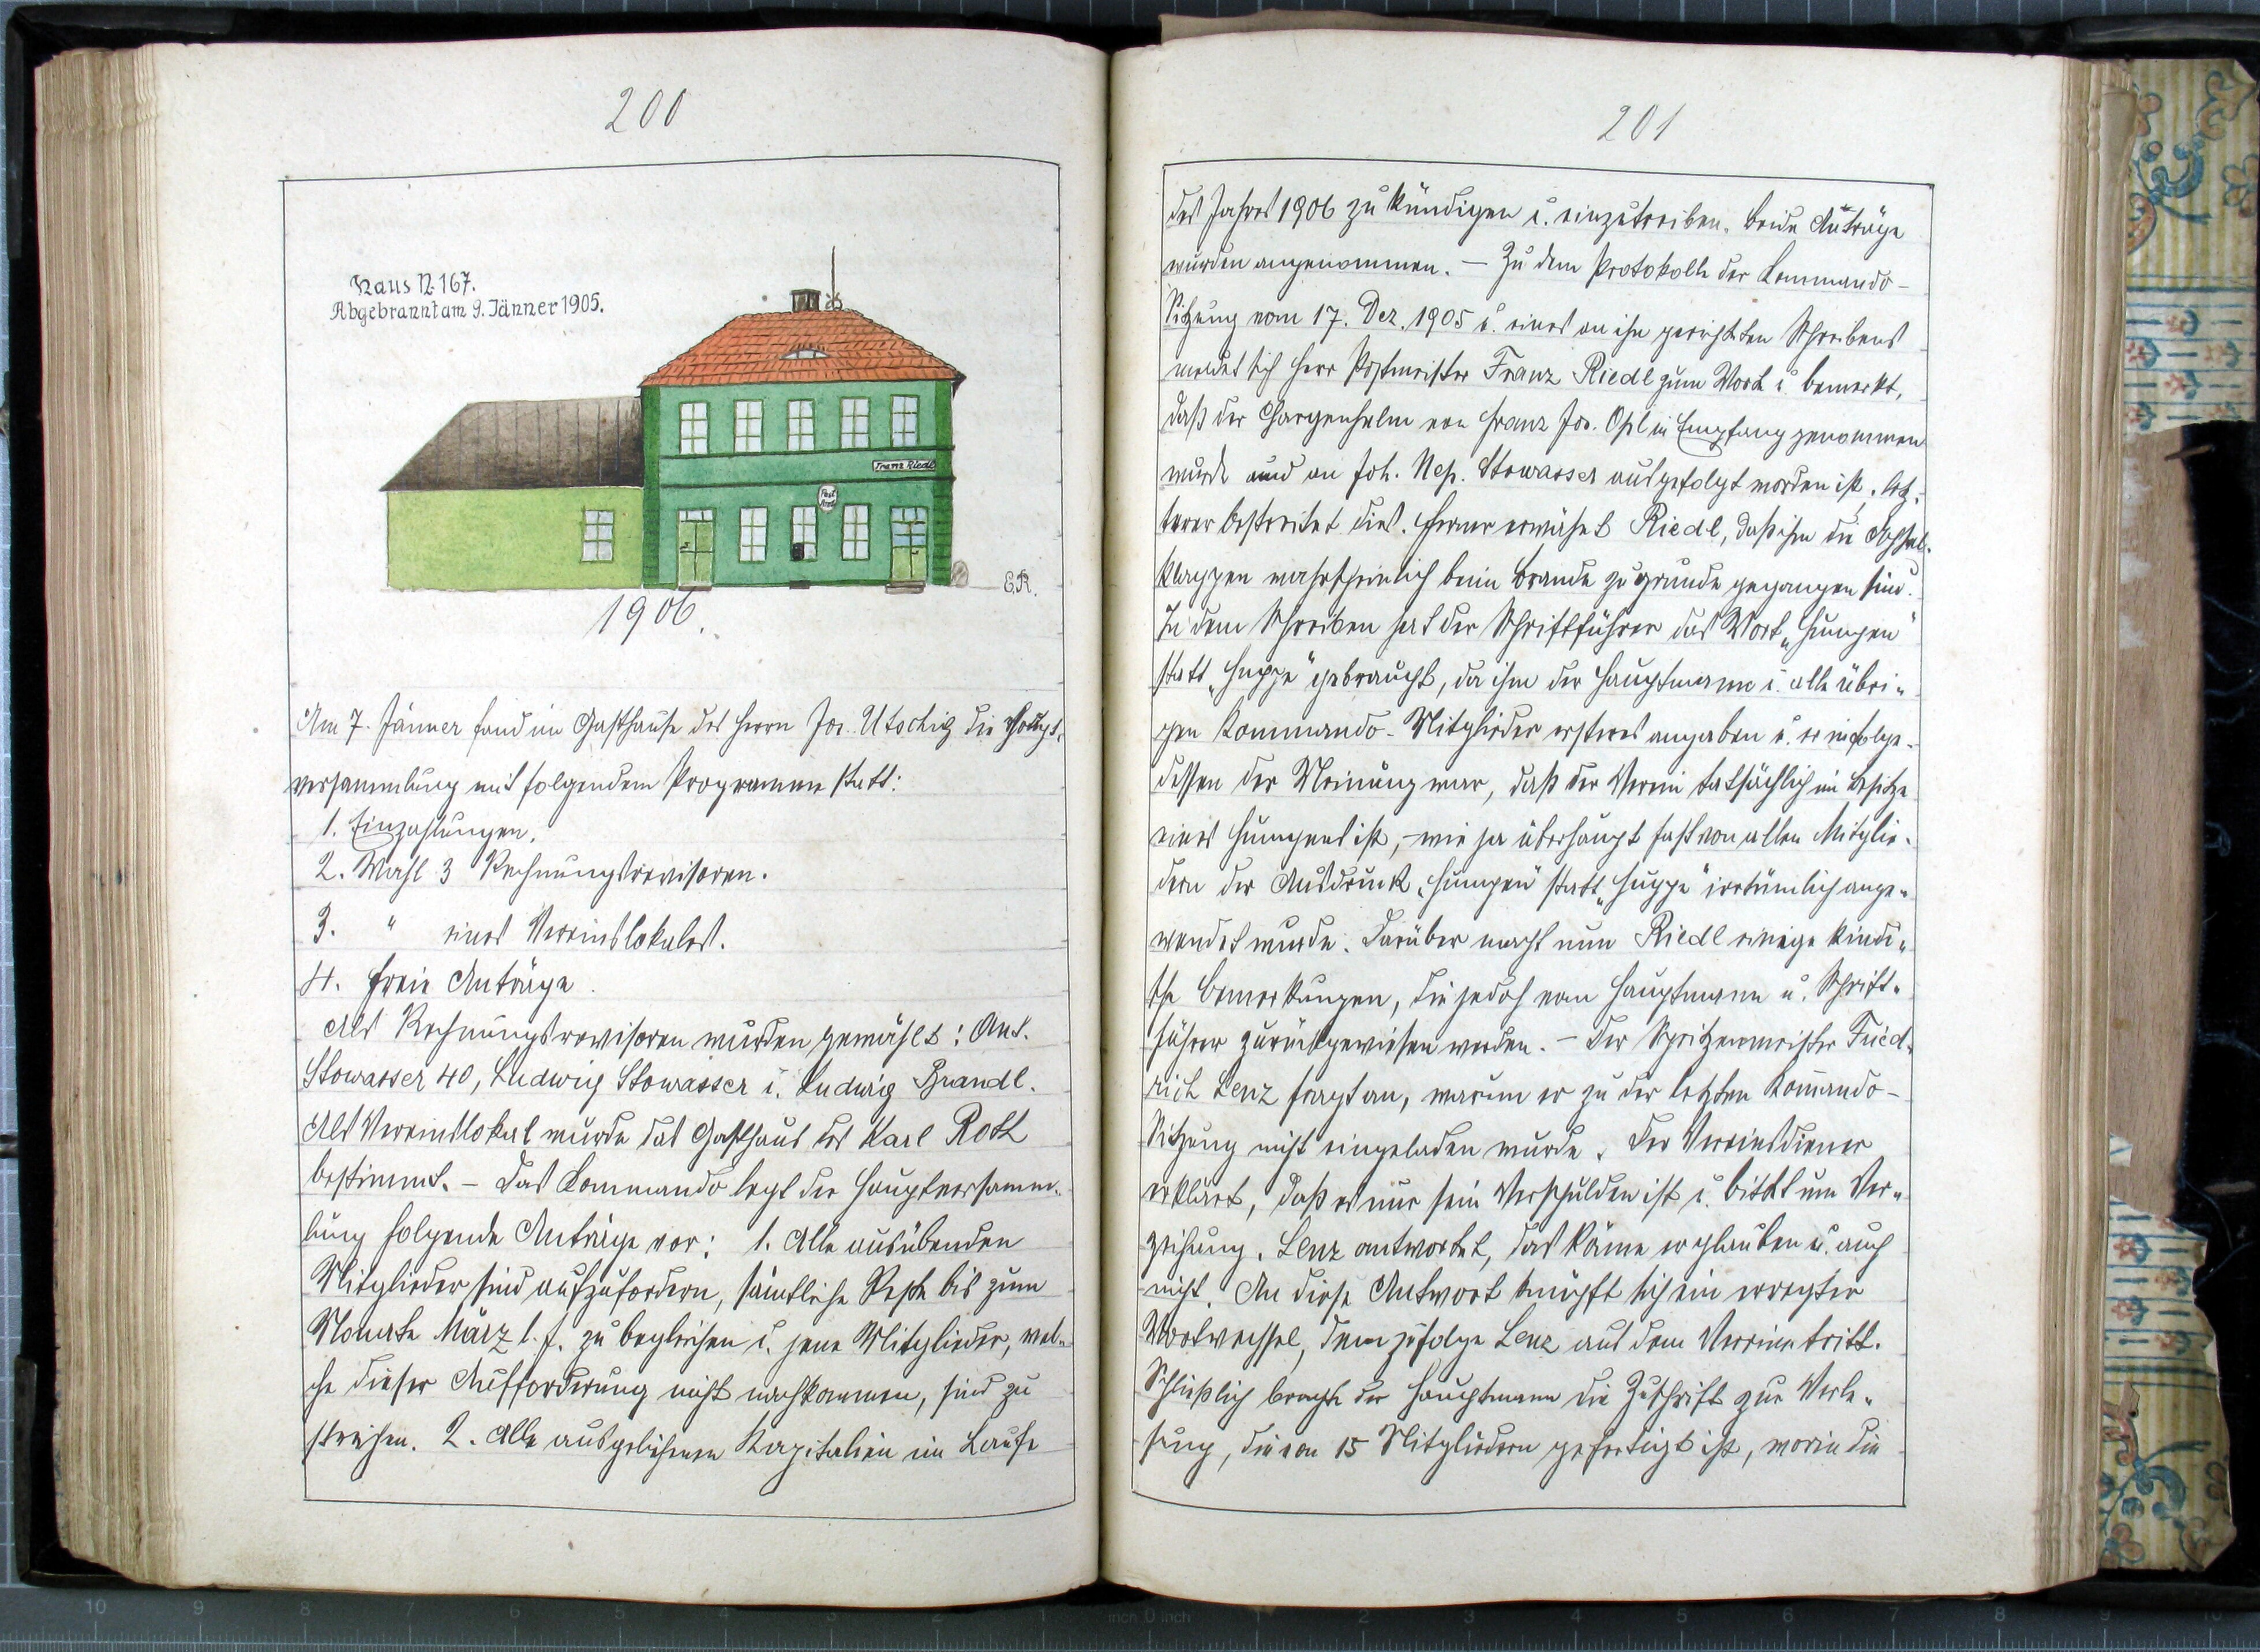 200
Haus N. 167.
Abgebrannt am 9. Jänner 1905.
Franz Riedl
Post
Amt
E.R.
1906.
Am 7. Jänner fand im Gasthause des Herrn Jos. Utschig die Haupt-
versammlung mit folgendem Programme statt:
1. Einzahlungen.
2. Wahl 3 Rechnungsrevisoren.
3. " eines Vereinslokales.
4. Freie Anträge.
Als Rechnungsrevisoren wurden gewählt: Ant.
Stowasser 40, Ludwig Stowasser u. Ludwig Brandl.
Als Vereinslokal wurde das Gasthaus des Karl Roth
bestimmt. – Das Kommando legt der Hauptversamm-
lung folgende Anträge vor: 1. Alle ausübenden
Mitglieder sind aufzufordern, sämtliche Reste bis zum
Monate März l. J. zu begleichen u. jene Mitglieder, wel-
che dieser Aufforderung nicht nachkommen, sind zu
streichen. 2. Alle ausgeliehenen Kapitalien im Laufe
201
des Jahres 1906 zu kündigen u. einzutreiben. Beide Anträge
wurden angenommen. – Zu dem Protokolle der Kommando-
Sitzung vom 17. Dez. 1905 u. eines an ihn gerichteten Schreibens
meldet sich Herr Postmeister Franz Riedl zum Wort u. bemerkt,
daß der Chargenhelm von Franz Jos. Opl in Empfang genommen
wurde und an Joh. Nep. Stowasser ausgefolgt worden ist, letz-
terer bestreitet dies. Ferner erwähnt Riedl, daß ihm die Achsel-
klappen wahrscheinlich beim Brande zugrunde gegangen sind.
In dem Schreiben hat der Schriftführer das Wort „Humpen"
statt „Huppe" gebraucht, da ihm der Hauptmann u. alle übri-
gen Kommando-Mitglieder ersteres angaben u. er infolge-
dessen der Meinung war, daß der Verein tatsächlich im Besitze
eines Humpens ist, – wie ja überhaupt fast von allen Mitglie-
dern der Ausdruck „Humpen" statt „Huppe" irrtümlich ange-
wendet wurde. Darüber macht nun Riedl einige kindi-
sche Bemerkungen, die jedoch vom Hauptmann u. Schrift-
führer zurückgewiesen werden. – Der Spritzenmeister Fried-
rich Lenz fragt an, warum er zu der letzten Kommando-
Sitzung nicht eingeladen wurde. Der Vereinsdiener
erklärt, daß es nur sein Verschulden ist u. bittet um Ver-
zeihung. Lenz antwortet, das könne er glauben u. auch
nicht. An diese Antwort knüpft sich ein erregter
Wortwechsel, demzufolge Lenz aus dem Vereine tritt.
Schließlich brachte der Hauptmann die Zuschrift zur Verle-
sung, die von 15 Mitgliedern gefertigt ist, worin die